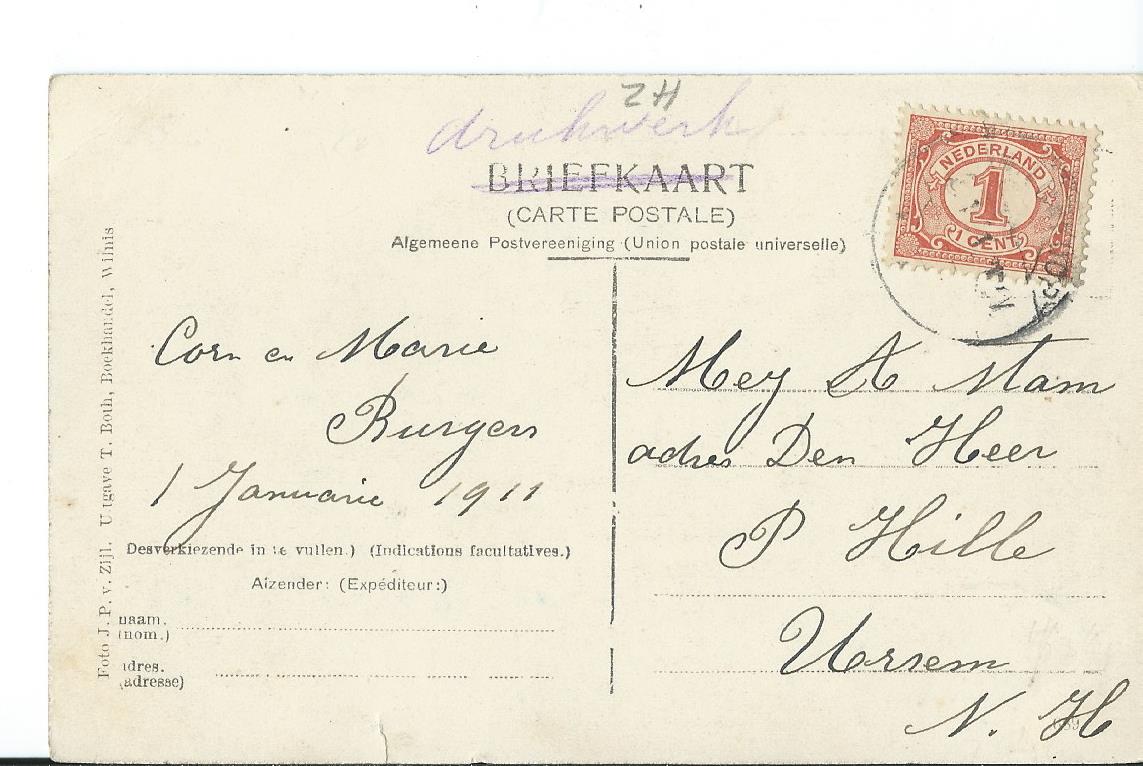 ZH
drukwerk
BRIEFKAART
(CARTE POSTALE)
Algemeene Postvereeniging (Union postale universelle)
NEDERLAND
1
1 CENT
Corn en Marie
Burgers
1 Januarie 1911
Desverkiezende in te vullen.) (Indications facultatives.)
Afzender: (Expéditeur:)
naam.
(nom.)
adres.
(adresse)
Foto J. P. v. Zijl. Uitgave T. Both, Boekhandel, Wilnis
Mej A Stam
adres Den Heer
P Hille
Ursem
N. H